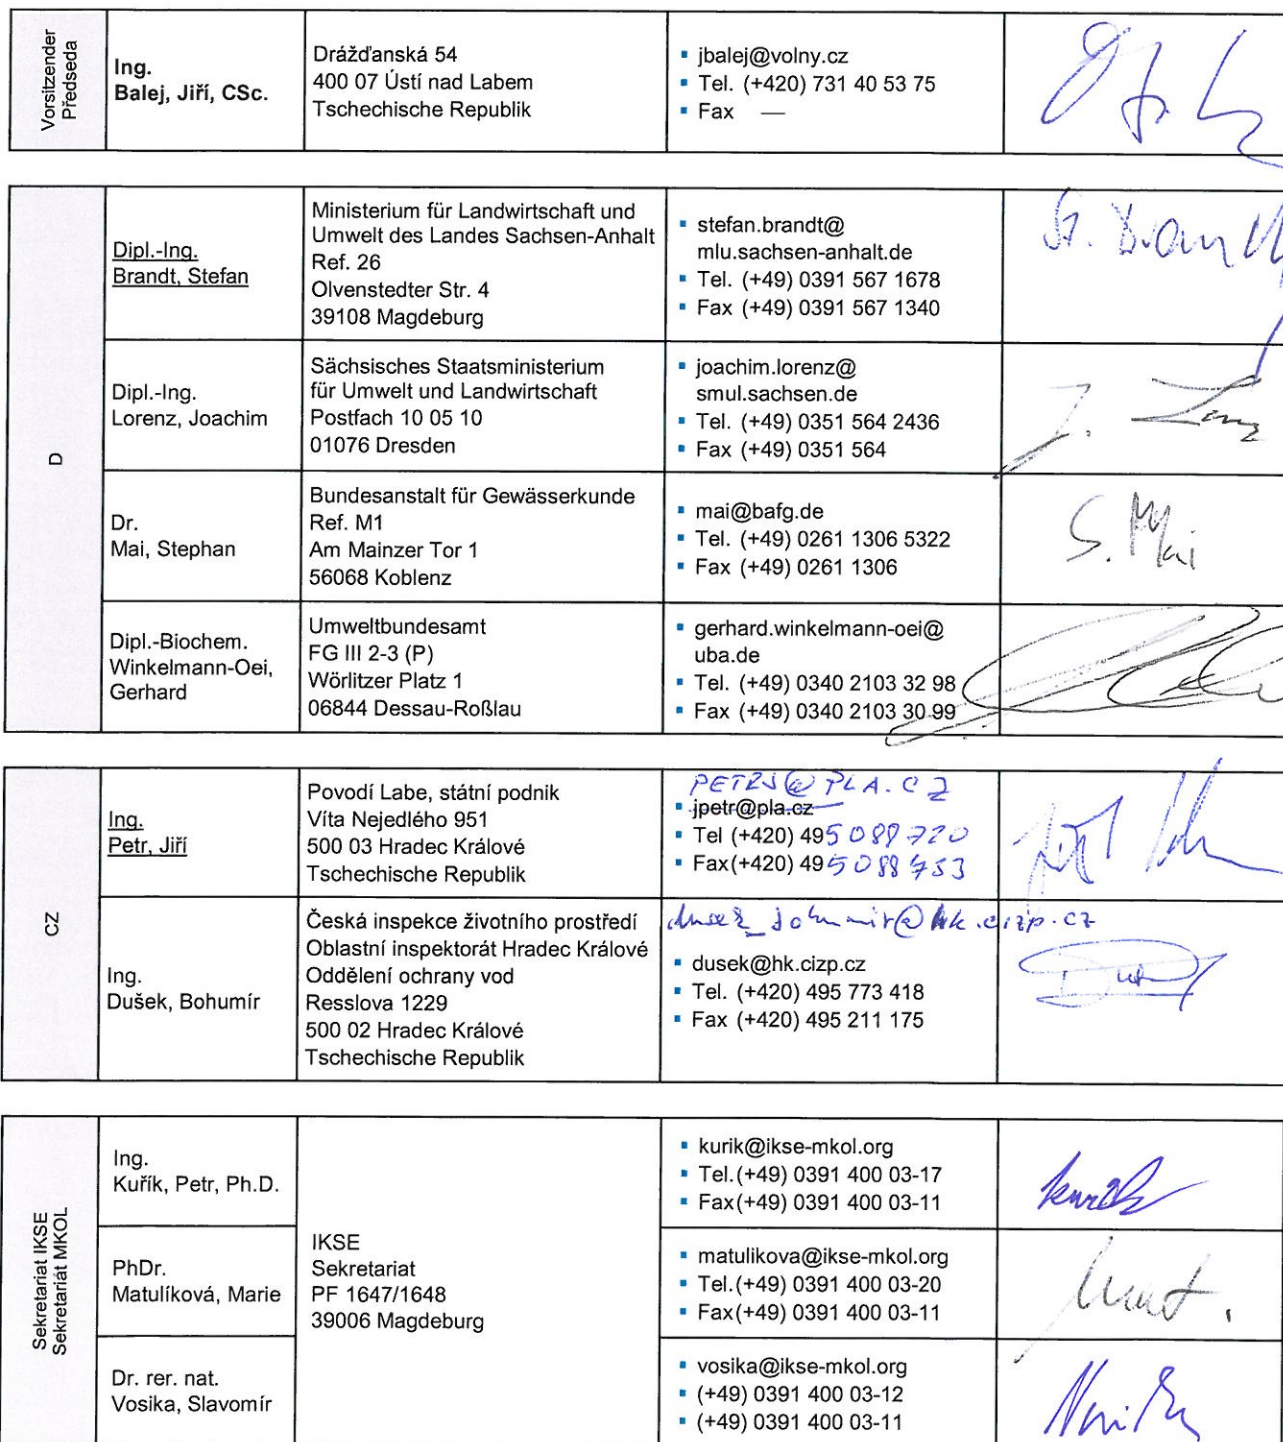 Vorsitzender
Předseda
Ing.
Balej, Jiří, CSc.
Drážďanská 54
400 07 Ústí nad Labem
Tschechische Republik
▪ jbalej@volny.cz
▪ Tel. (+420) 731 40 53 75
▪ Fax —
D
Dipl.-Ing.
Brandt, Stefan
Ministerium für Landwirtschaft und
Umwelt des Landes Sachsen-Anhalt
Ref. 26
Olvenstedter Str. 4
39108 Magdeburg
▪ stefan.brandt@
mlu.sachsen-anhalt.de
▪ Tel. (+49) 0391 567 1678
▪ Fax (+49) 0391 567 1340
St. Brandt
Dipl.-Ing.
Lorenz, Joachim
Sächsisches Staatsministerium
für Umwelt und Landwirtschaft
Postfach 10 05 10
01076 Dresden
▪ joachim.lorenz@
smul.sachsen.de
▪ Tel. (+49) 0351 564 2436
▪ Fax (+49) 0351 564
Dr.
Mai, Stephan
Bundesanstalt für Gewässerkunde
Ref. M1
Am Mainzer Tor 1
56068 Koblenz
▪ mai@bafg.de
▪ Tel. (+49) 0261 1306 5322
▪ Fax (+49) 0261 1306
S. Mai
Dipl.-Biochem.
Winkelmann-Oei,
Gerhard
Umweltbundesamt
FG III 2-3 (P)
Wörlitzer Platz 1
06844 Dessau-Roßlau
▪ gerhard.winkelmann-oei@
uba.de
▪ Tel. (+49) 0340 2103 32 98
▪ Fax (+49) 0340 2103 30 99
CZ
Ing.
Petr, Jiří
Povodí Labe, státní podnik
Víta Nejedlého 951
500 03 Hradec Králové
Tschechische Republik
PETRJ@PLA.CZ
▪ jpetr@pla.cz
▪ Tel (+420) 495 088 720
▪ Fax(+420) 495 088 753
Ing.
Dušek, Bohumír
Česká inspekce životního prostředí
Oblastní inspektorát Hradec Králové
Oddělení ochrany vod
Resslova 1229
500 02 Hradec Králové
Tschechische Republik
▪ dusek@hk.cizp.cz
▪ Tel. (+420) 495 773 418
▪ Fax (+420) 495 211 175
Sekretariat IKSE
Sekretariát MKOL
Ing.
Kuřík, Petr, Ph.D.
IKSE
Sekretariat
PF 1647/1648
39006 Magdeburg
▪ kurik@ikse-mkol.org
▪ Tel.(+49) 0391 400 03-17
▪ Fax(+49) 0391 400 03-11
PhDr.
Matulíková, Marie
▪ matulikova@ikse-mkol.org
▪ Tel.(+49) 0391 400 03-20
▪ Fax(+49) 0391 400 03-11
Dr. rer. nat.
Vosika, Slavomír
▪ vosika@ikse-mkol.org
▪ (+49) 0391 400 03-12
▪ (+49) 0391 400 03-11